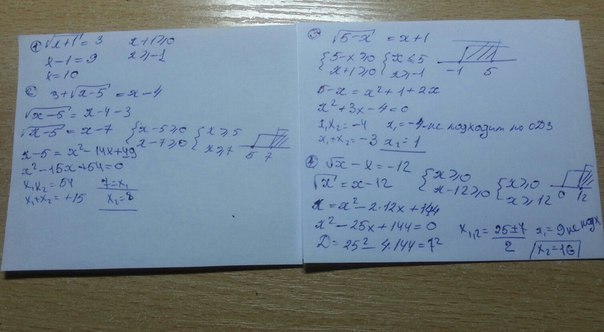 1) √x+1 = 3   x+1≥0
x-1=9   x≥-1
x=10
2) 3+√x-5 = x-4
√x-5 = x-4-3
√x-5 = x-7   { x-5≥0   { x≥5
x-7≥0   x≥7   5 7
x-5=x²-14x+49
x²-15x+54=0
x₁x₂=54   7=x₁
x₁+x₂=+15   x₂=8
√5-x = x+1
{ 5-x≥0   { x≤5
x+1≥0   x≥-1   -1 5
5-x=x²+1+2x
x²+3x-4=0
x₁x₂=-4   x₁=-4-не подходит по ОДЗ
x₁+x₂=-3   x₂=1
√x-x=-12
√x=x-12   { x≥0   { x≥0
x-12≥0   x≥12   0 12
x=x²-2·12x+144
x²-25x+144=0   x₁,₂=25±7/2   x₁=9 не подх
D=25²-4·144=7²   x₂=16